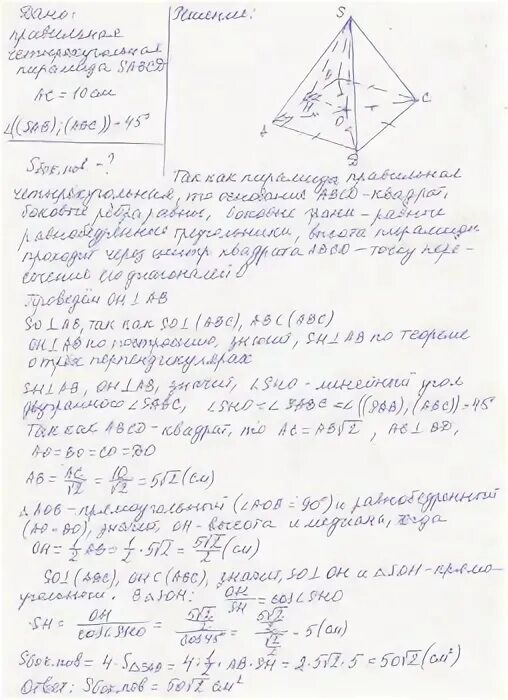 Дано:
правильная
четырёхугольная
пирамида SABCD
AC = 10 см
∠((SAB);(ABC)) = 45°
Sбок.пов - ?
Решение:
S
A
B
C
O
Так как пирамида правильная
четырёхугольная, то основание ABCD - квадрат,
боковые рёбра равны, боковые грани - равные
равнобедренные треугольники, высота пирамиды
проходит через центр квадрата ABCD - точку пере-
сечения его диагоналей O
Проведём OH ⊥ AB
SO ⊥ AB, так как SO ⊥ (ABC), AB ⊂ (ABC)
OH ⊥ AB по построению, значит, SH ⊥ AB по теореме
о трёх перпендикулярах
SH ⊥ AB, OH ⊥ AB, значит, ∠SHO - линейный угол
двугранного ∠SABC, ∠SHO = ∠SABC = ∠((SAB);(ABC)) = 45°
Так как ABCD - квадрат, то AC = AB√2, AC ⊥ BD,
AO = BO = CO = DO
AB = AC/√2 = 10/√2 = 5√2 (см)
△AOB - прямоугольный (∠AOB = 90°) и равнобедренный
(AO = BO), значит, OH - высота и медиана, тогда
OH = 1/2 AB = 1/2 · 5√2 = 5√2/2 (см)
SO ⊥ (ABC), OH ⊂ (ABC), значит, SO ⊥ OH и △SOH - прямо-
угольный. В △SOH: OH/SH = cos∠SHO
SH = OH/cos∠SHO = (5√2/2)/cos45° = (5√2/2)/(√2/2) = 5 (см)
Sбок.пов = 4 · S△SAB = 4 · 1/2 · AB · SH = 2 · 5√2 · 5 = 50√2 (см²)
Ответ: Sбок.пов = 50√2 см²